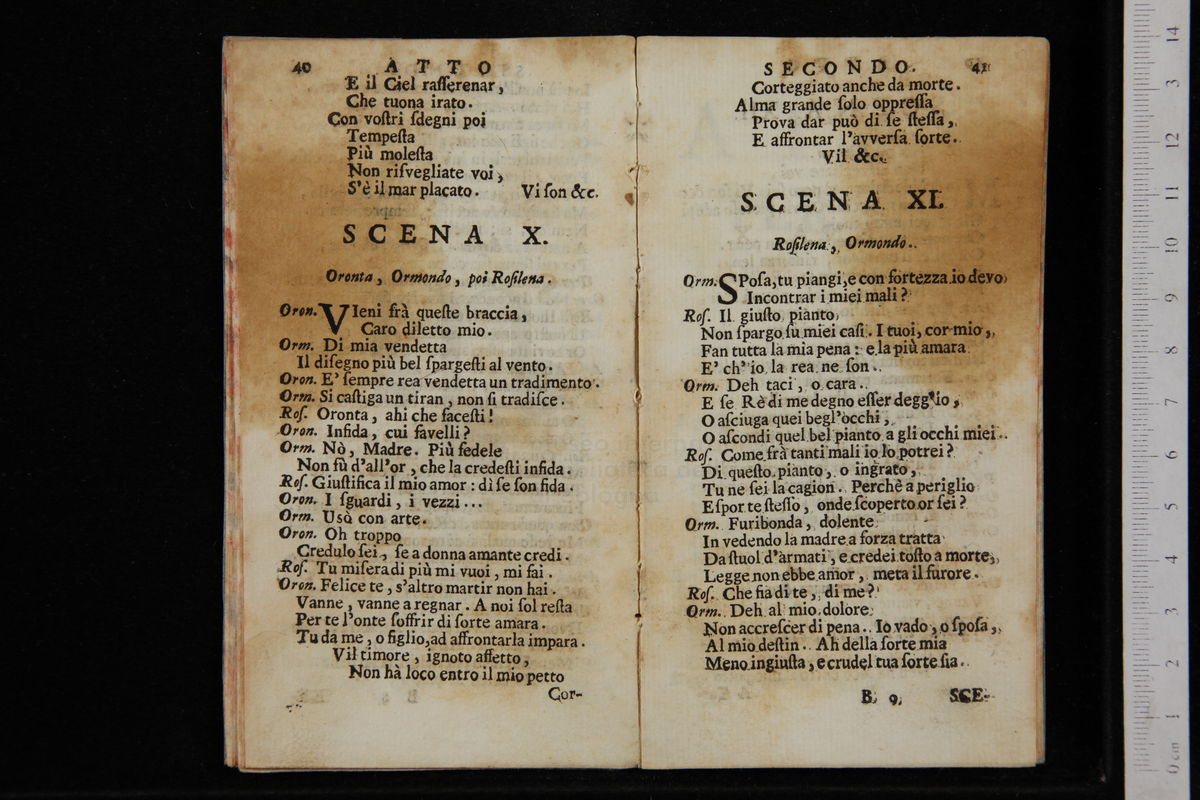 40 ATTO
E il Ciel raſſerenar,
Che tuona irato.
Con voſtri ſdegni poi
Tempeſta
Più moleſta
Non riſvegliate voi,
S'è il mar placato. Vi ſon &c.
SCENA X.
Oronta, Ormondo, poi Roſilena.
Oron. VIeni frà queſte braccia,
Caro diletto mio.
Orm. Di mia vendetta
Il diſegno più bel ſpargeſti al vento.
Oron. E' ſempre rea vendetta un tradimento.
Orm. Si caſtiga un tiran, non ſi tradiſce.
Roſ. Oronta, ahi che faceſti!
Oron. Infida, cui favelli?
Orm. Nò, Madre. Più fedele
Non fù d'all'or, che la credeſti infida.
Roſ. Giuſtifica il mio amor: dì ſe ſon fida.
Oron. I ſguardi, i vezzi...
Orm. Usò con arte.
Oron. Oh troppo
Credulo ſei, ſe a donna amante credi.
Roſ. Tu miſera di più mi vuoi, mi fai.
Oron. Felice te, s'altro martir non hai.
Vanne, vanne a regnar. A noi ſol reſta
Per te l'onte ſoffrir di ſorte amara.
Tu da me, o figlio, ad affrontarla impara.
Vil timore, ignoto affetto,
Non hà loco entro il mio petto
Cor-
SECONDO. 41
Corteggiato anche da morte.
Alma grande ſolo oppreſſa
Prova dar può di ſe ſteſſa,
E affrontar l'avverſa ſorte.
Vil &c.
SCENA XI.
Roſilena, Ormondo.
Orm. SPoſa, tu piangi, e con fortezza io devo
Incontrar i miei mali?
Roſ. Il giuſto pianto
Non ſpargo ſu miei caſi. I tuoi, cor mio,
Fan tutta la mia pena: e la più amara
E' ch'io la rea ne ſon.
Orm. Deh taci, o cara.
E ſe Rè di me degno eſſer degg'io,
O aſciuga quei begl'occhi,
O aſcondi quel bel pianto a gli occhi miei.
Roſ. Come frà tanti mali io lo potrei?
Di queſto pianto, o ingrato,
Tu ne ſei la cagion. Perchè a periglio
Eſpor te ſteſſo, onde ſcoperto or ſei?
Orm. Furibonda, dolente
In vedendo la madre a forza tratta
Da ſtuol d'armati, e credei toſto a morte,
Legge non ebbe amor, meta il furore.
Roſ. Che fia di te, di me?
Orm. Deh al mio dolore
Non accreſcer di pena. Io vado, o ſpoſa,
Al mio deſtin. Ah della ſorte mia
Meno ingiuſta, e crudel tua ſorte ſia.
B 9 SCE-
14
13
12
11
10
9
8
7
6
5
4
3
2
1
0 cm